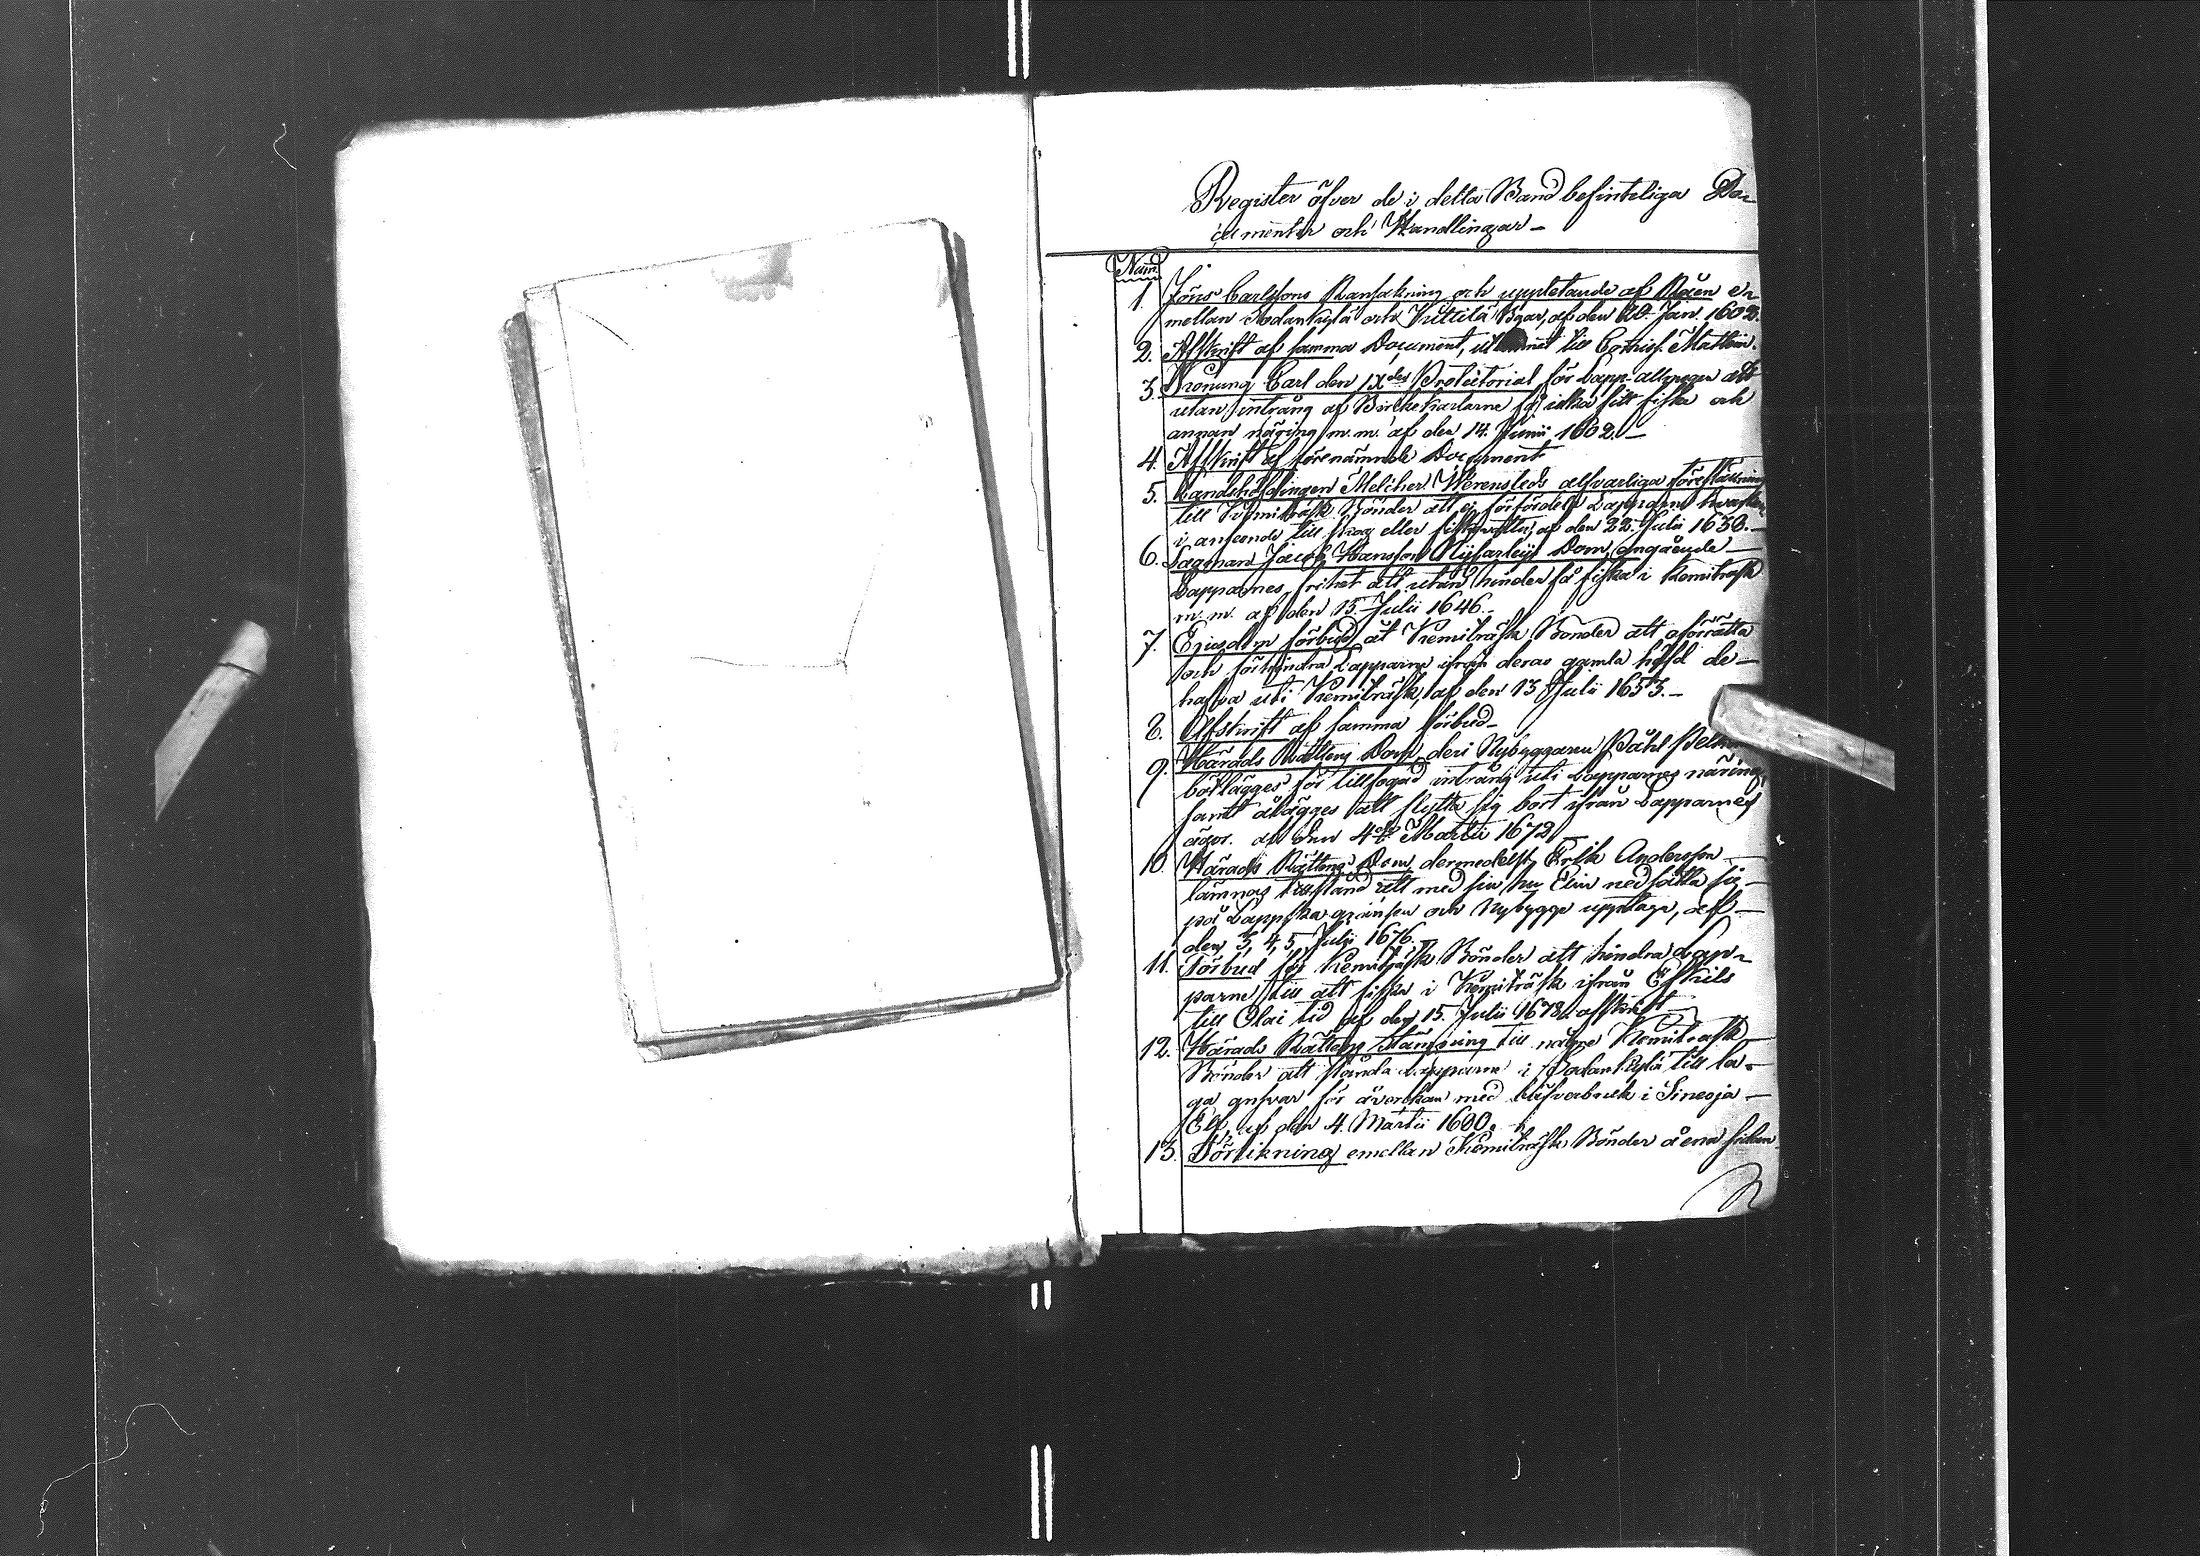 Register öfver de i detta Band befinteliga Do-
cumenter och Handlingar -
Num
1. Jöns Carlssons Ransakning och uppletande af Råen e-
mellan Sodankylä och Kittilä Byar, af den 20. Jan. 1602.
2. Afskrift af samma Document, till
3. Konung Carl den IX des Protectorial för Lapp-allmogen att
utan intrång af Birckekarlarne få idka sitt fiske och
annan näring m.m. af den 14. Junii 1602. -
4. Afskrift af förenämnde Document
5. Landshöfdingen Melcher Werensteds alfvarliga föreställning
till Kemiträsk Bönder att ej förfördela Lapparne hvarken
i anseende till skog eller fiskevatten, af den 22. Julii 1650. -
6. Lagman Jacob Hansson Dom, angående -
Lapparnes frihet att utan hinder få fiska i Kemiträsk
m.m. af den 15. Julii 1646. -
7. Ejusdem förbud åt Kemiträsk Bönder att oförrätta
och förhindra Lapparne ifrån deras gamla häfd de -
hafva uti Kemiträsk, af den 13 Julii 1653. -
8. Afskrift af samma förbud -
9. Härads Rättens Dom, deri Nybyggaren Påhl
botlägges för tillfogad intrång uti Lapparnes näring,
samt ålägges att flytta sig bort ifrån Lapparnes
ägor. af den 4de Martii 1672
10. Härads Rättens Dom, dermedelst Erik Andersson -
lämnas tillstånd att med sin Elin nedsätta sig -
på Lappska gränsen och Nybygge upptaga, af -
den 3, 4, 5 Julii 1676.
11. Förbud för Kemiträsk Bönder att hindra Lap-
parne till att fiska i Kemiträsk ifrån Eskils
till Olai tid af den 15. Julii 1678. afskrift
12. Härads Rättens Stämning till någre Kemiträsk -
Bönder att stånda Lapparne i Sodankylä till la-
ga ansvar för åverkan med bäfverbruk i -
Elf, af den 4. Martii 1680.
13. Förlikning emellan Kemiträsk Bönder å ena sidan